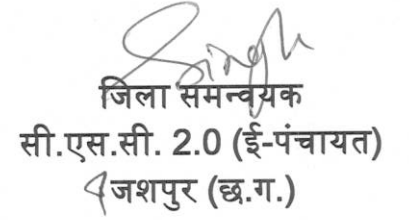 Singh
जिला समन्वयक
सी.एस.सी. 2.0 (ई-पंचायत)
जशपुर (छ.ग.)